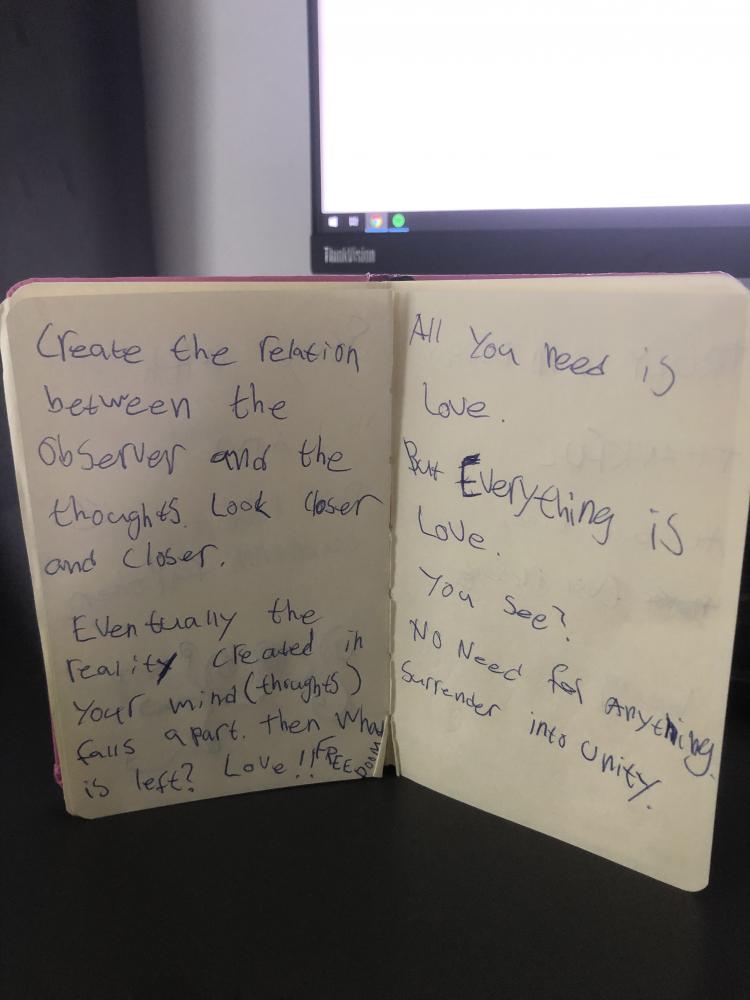 ThinkVision
Create the relation
between the
observer and the
thoughts. Look closer
and closer.
Eventually the
reality created in
your mind (thoughts)
falls apart. then what
is left? Love!! FREE
DOOM
All You need is
Love.
But Everything is
Love.
You see?
No Need for anything.
Surrender into Unity.